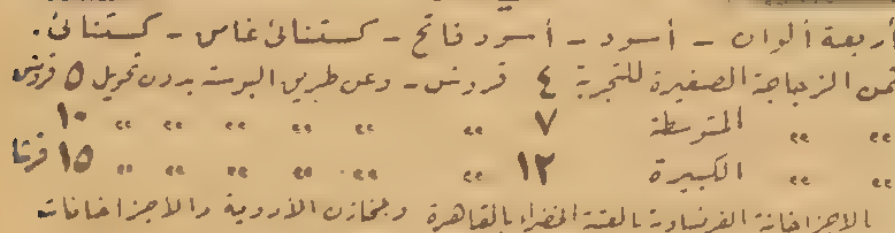 أربعة ألوان - أسود - أسود فاتح - كستنائى غامق - كستنائى.
ثمن الزجاجة الصغيرة للتجربة ٤ قروش - وعن طريق البوستة بدون تحويل ٥ قروش
„ „ المتوسطة ٧ „ „ „ „ „ „ ١٠
„ „ الكبيرة ١٢ „ „ „ „ „ „ ١٥ قرشا
بالاجزاخانة الفرنساوية بالعتبة الخضراء بالقاهرة وبمخازن الأدوية والاجزاخانات